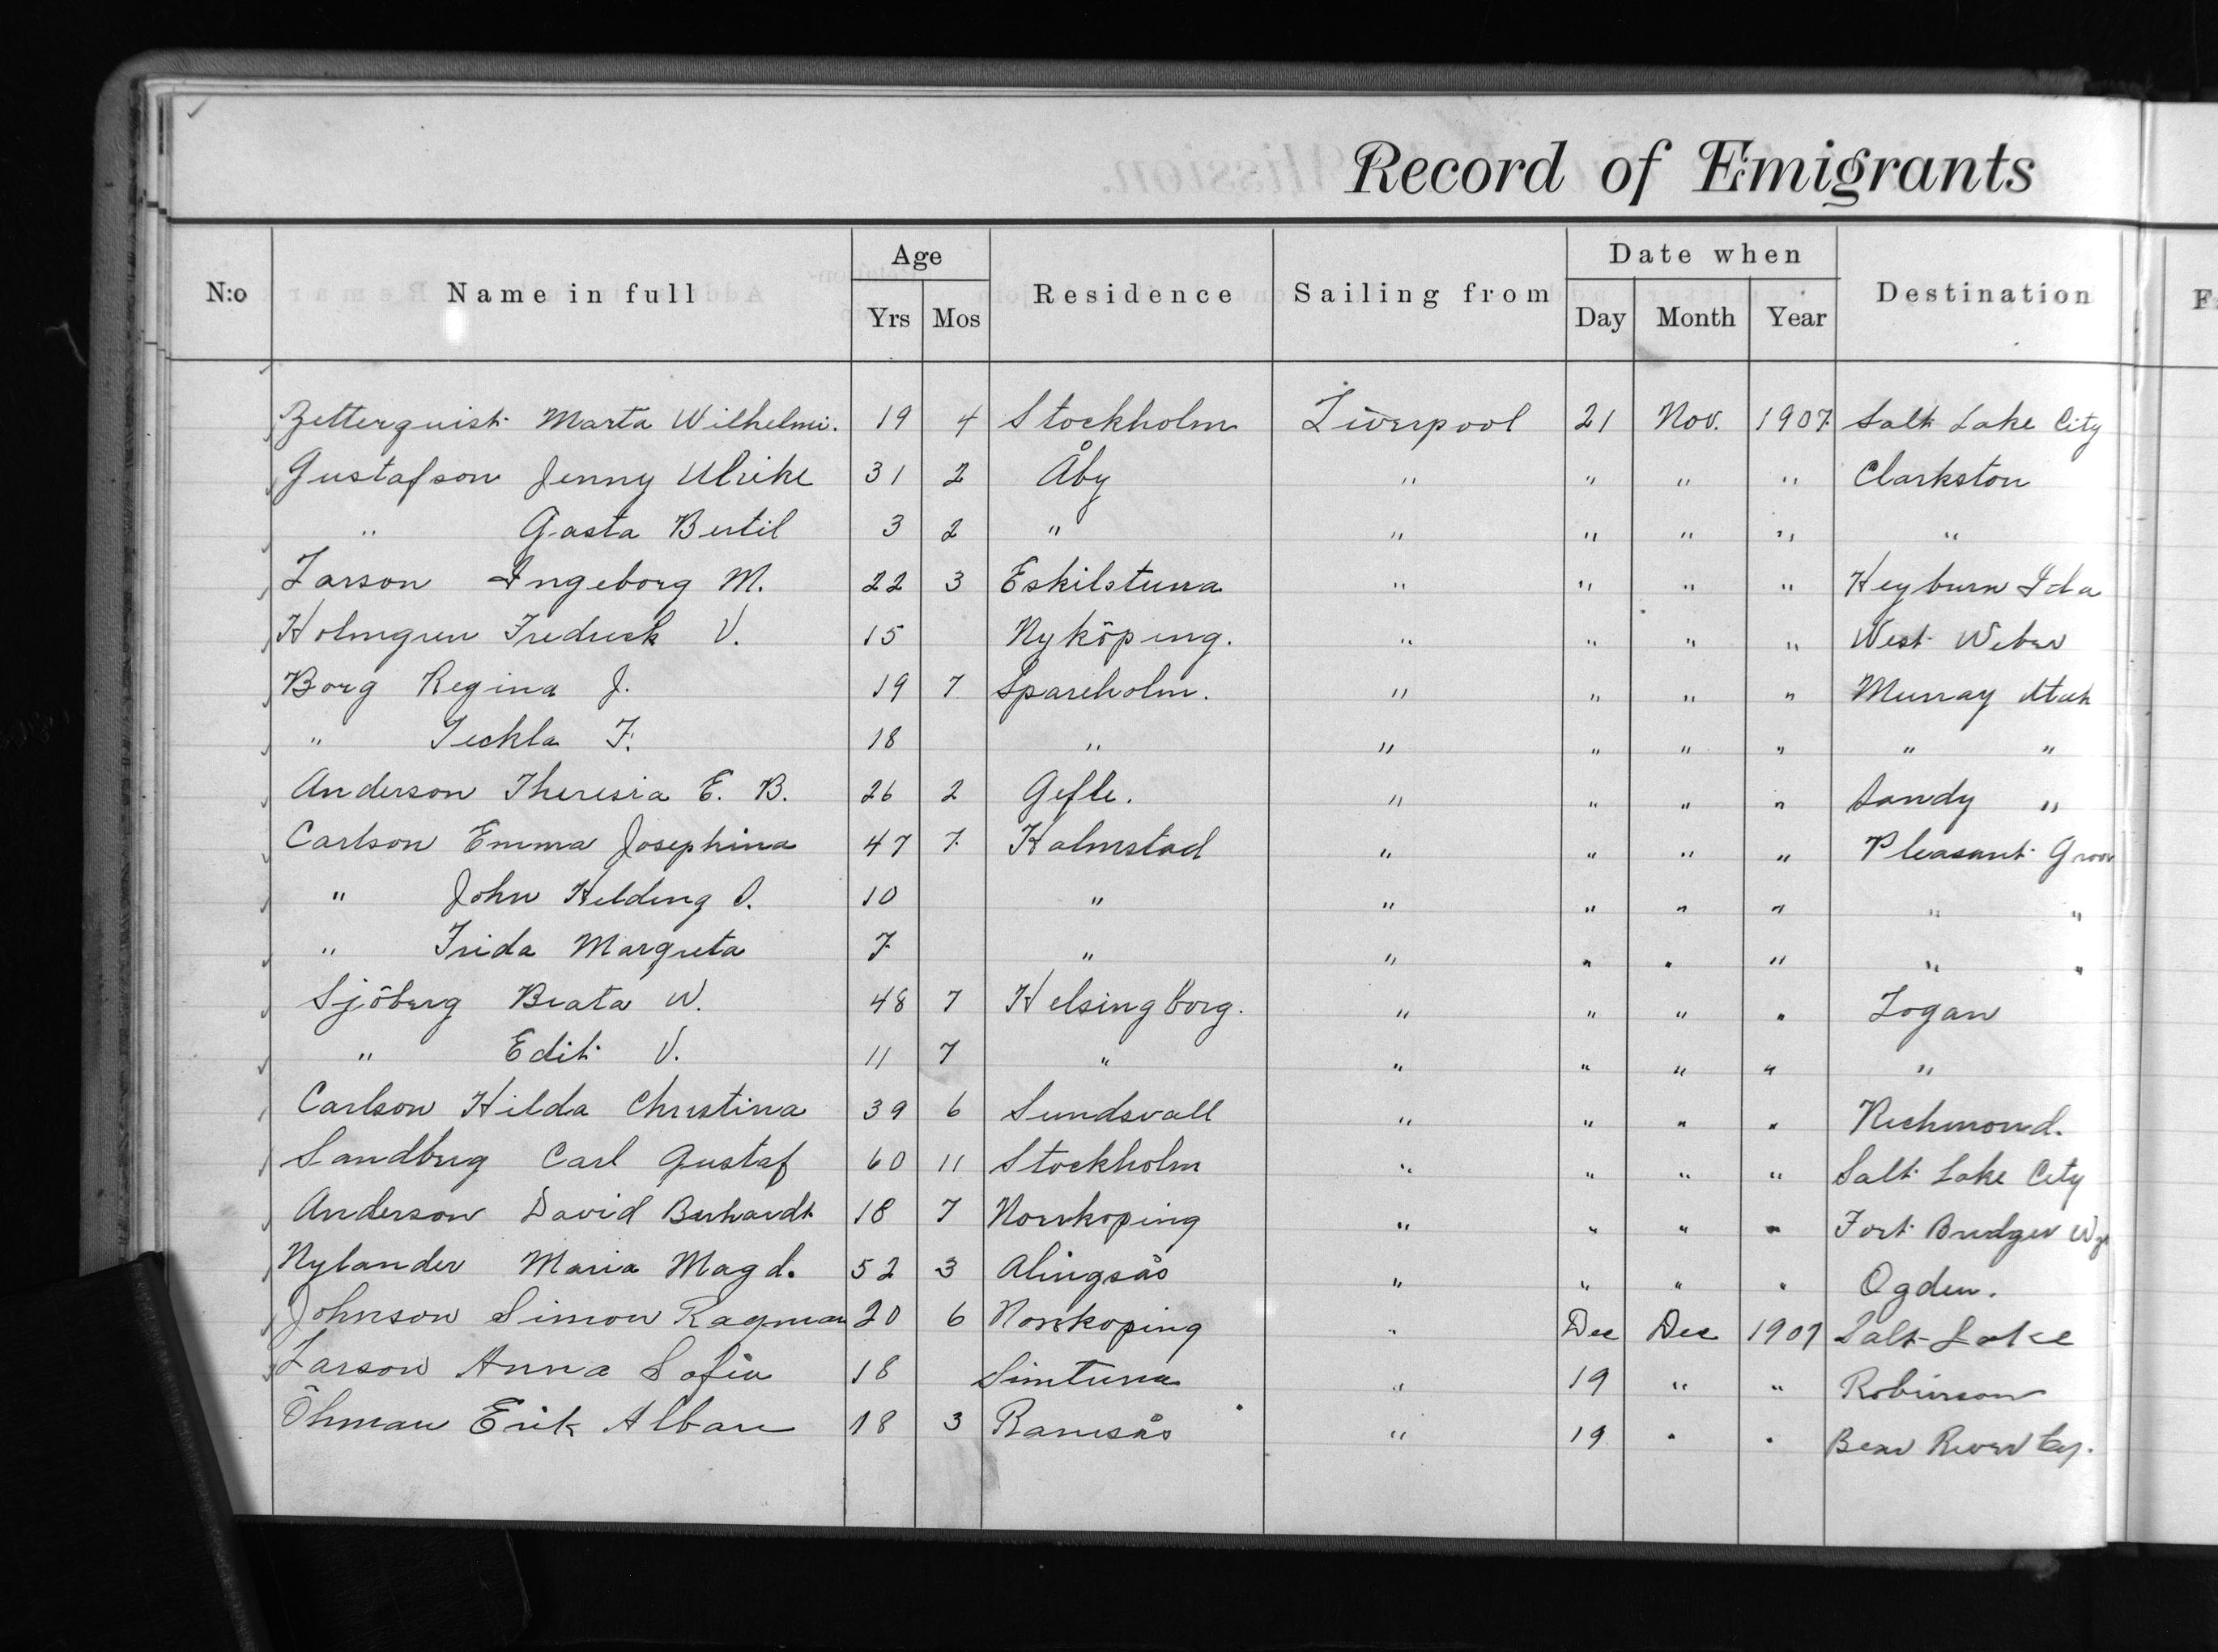 Record of Emigrants
N:o Name in full Age Residence Sailing from Date when Destination
Yrs Mos Day Month Year
Zetterquist Marta Wilhelmi. 19 4 Stockholm Liverpool 21 Nov. 1907 Salt Lake City
Gustafson Jenny Ulrike 31 2 Åby " " " " Clarkston
" Gasta Bertil 3 2 " " " " " "
Larson Ingeborg M. 22 3 Eskilstuna " " " " Heyburn Ida
Holmgren Fredrick V. 15 Nyköping. " " " " West Weber
Borg Regina J. 19 7 Spareholm. " " " " Murray Utah
" Teckla F. 18 " " " " " " "
Anderson Theresia E. B. 26 2 Gefle. " " " " Sandy "
Carlson Emma Josephina 47 7 Halmstad " " " " Pleasant Grov
" John Helding O. 10 " " " " " " "
" Frida Margreta 7 " " " " " " "
Sjöberg Beata W. 48 7 Helsingborg. " " " " Logan
" Edit V. 11 7 " " " " " "
Carlson Hilda Christina 39 6 Sundsvall " " " " Richmond.
Sandberg Carl Gustaf 60 11 Stockholm " " " " Salt Lake City
Anderson David Berhardt 18 7 Norrkoping " " " " Fort Bridger Wy
Nylander Maria Magd. 52 3 Alingsås " " " " Ogden.
Johnson Simon Ragnar 20 6 Norrkoping " Dec Dec 1907 Salt Lake
Larson Anna Sofia 18 Simtuna " 19 " " Robinson
Öhman Erik Alban 18 3 Ramsås " 19 " " Bear River Cy.